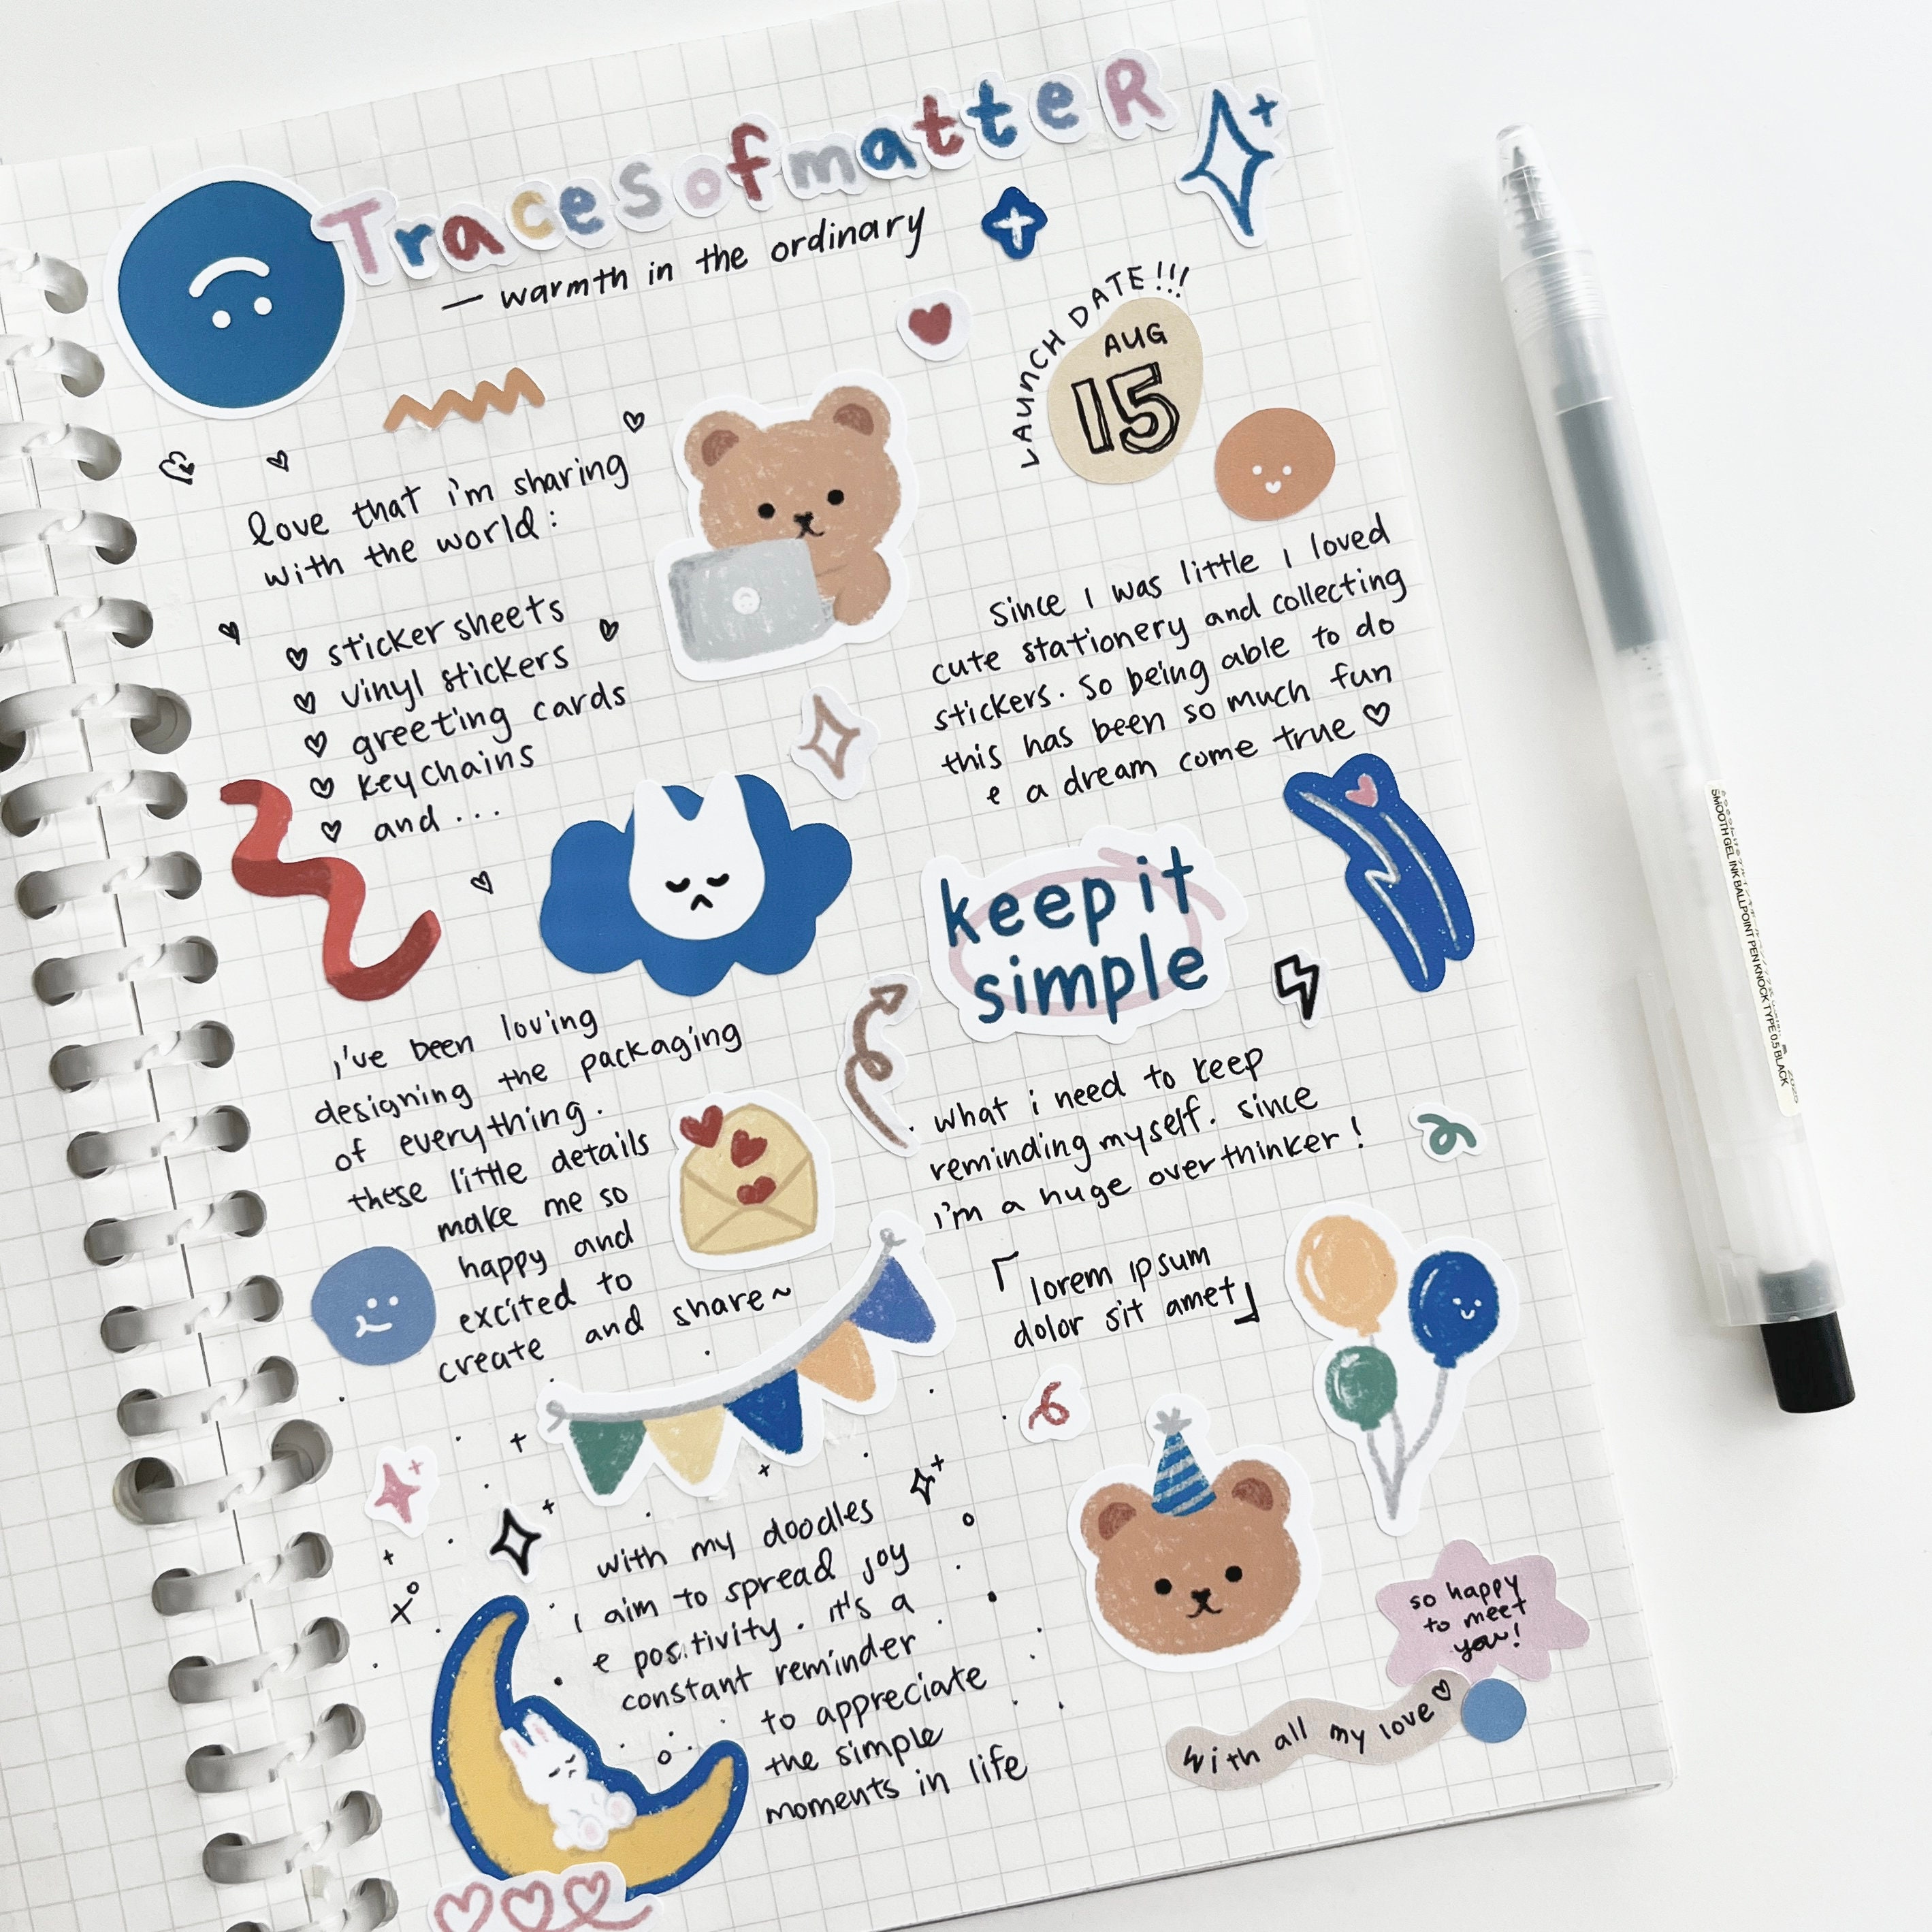 TracesofmatteR
— warmth in the ordinary
LAUNCH DATE!!!
AUG
15
love that i'm sharing
with the world:
♡ sticker sheets
♡ vinyl stickers
♡ greeting cards
♡ keychains
♡ and...
Since I was little I loved
cute stationery and collecting
stickers. So being able to do
this has been so much fun
e a dream come true ♡
keep it
simple
i've been loving
designing the packaging
of everything.
these little details
make me so
happy and
excited to
create and share~
what i need to keep
reminding myself. since
i'm a huge overthinker!
「lorem ipsum
dolor sit amet」
with my doodles
i aim to spread joy
e positivity. it's a
constant reminder
to appreciate
the simple
moments in life
so happy
to meet
you!
with all my love ♡
SMOOTH GEL INK BALLPOINT PEN KNOCK TYPE 0.5 BLACK